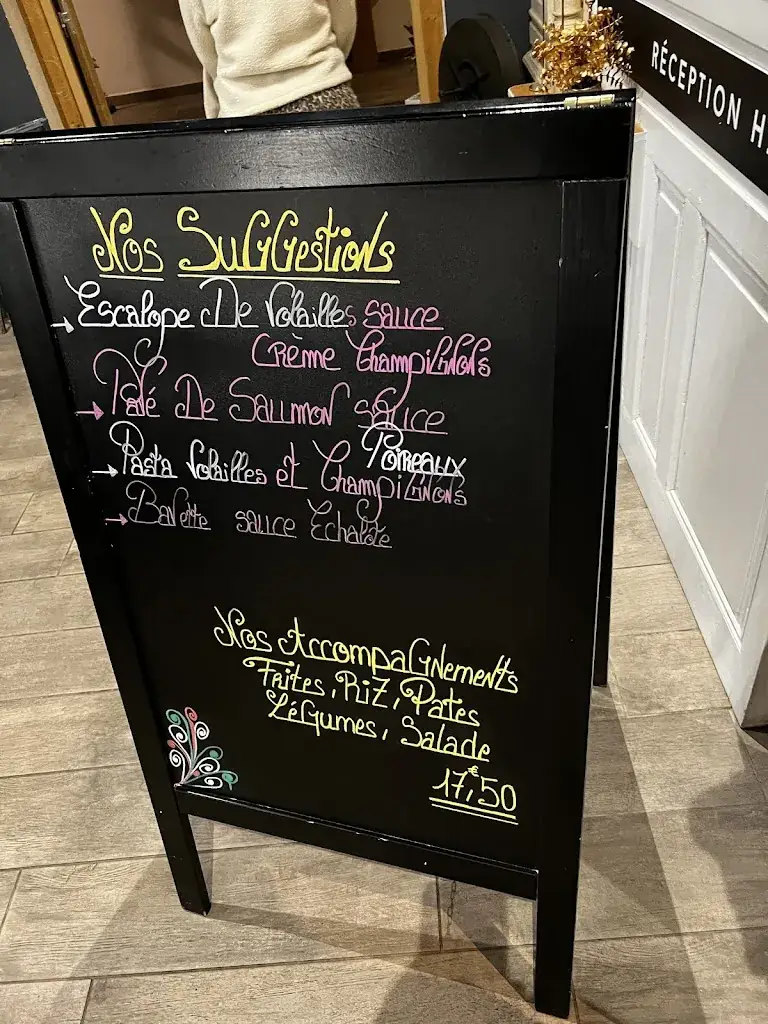 Nos Suggestions
→ Escalope De Volailles sauce
Crème Champignons
→ Pavé De Saumon sauce
Poireaux
→ Pasta Volailles et Champignons
→ Bavette sauce Echalote
Nos Accompagnements
Frites, Riz, Pates
Légumes, Salade
17,€50
RÉCEPTION H